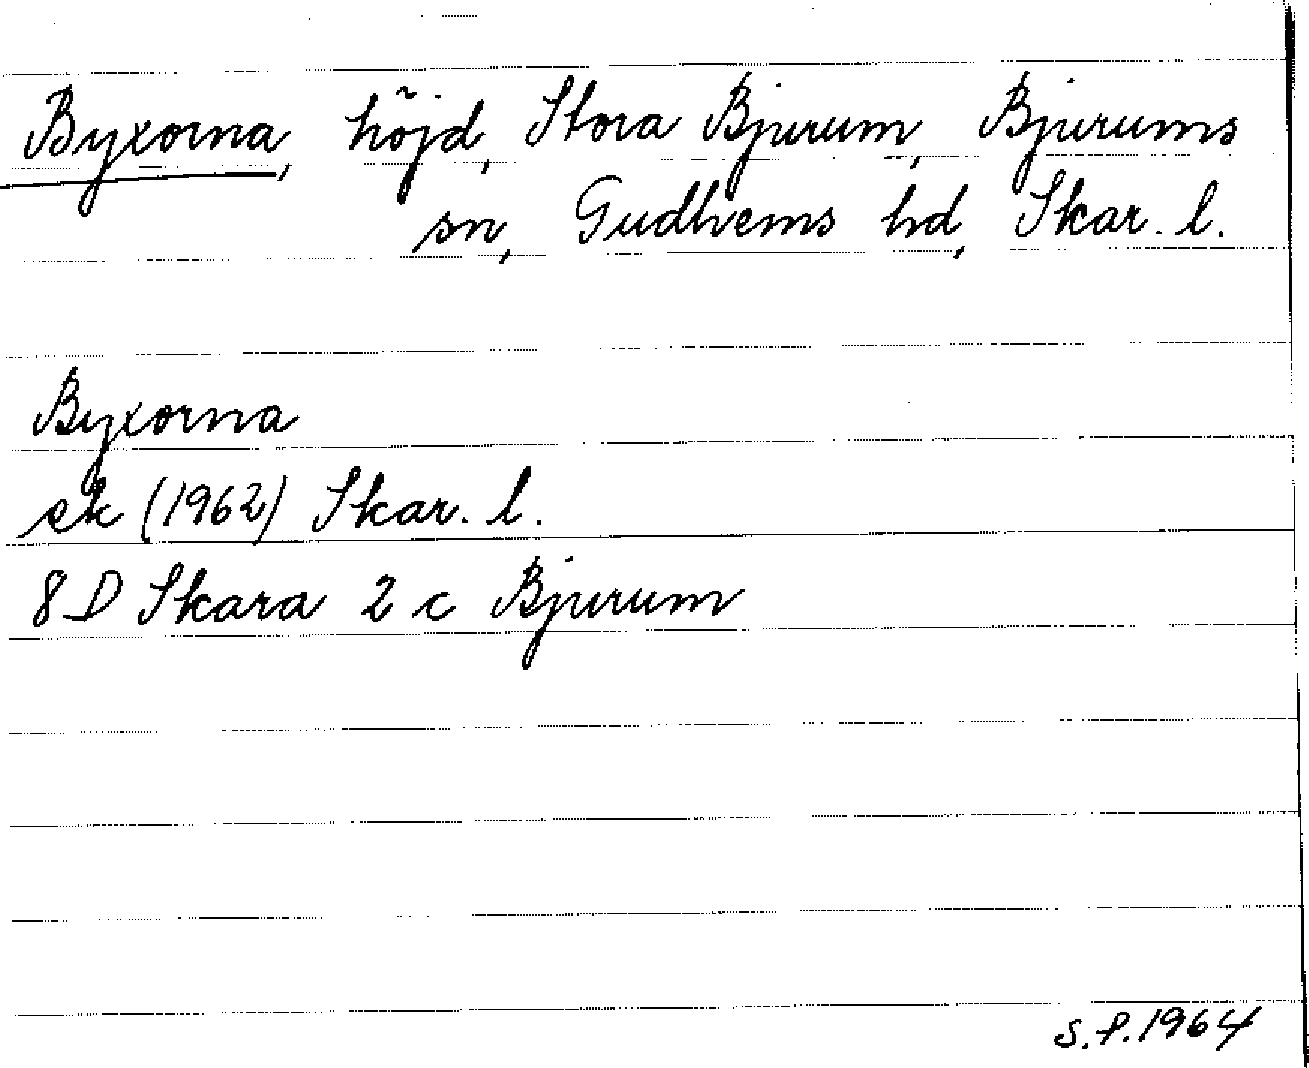 Byxorna, höjd, Stora Bjurum, Bjurums
sn, Gudhems hd, Skar. l.
Byxorna
ek (1962) Skar. l.
8D Skara 2 c Bjurum
S.P. 1964